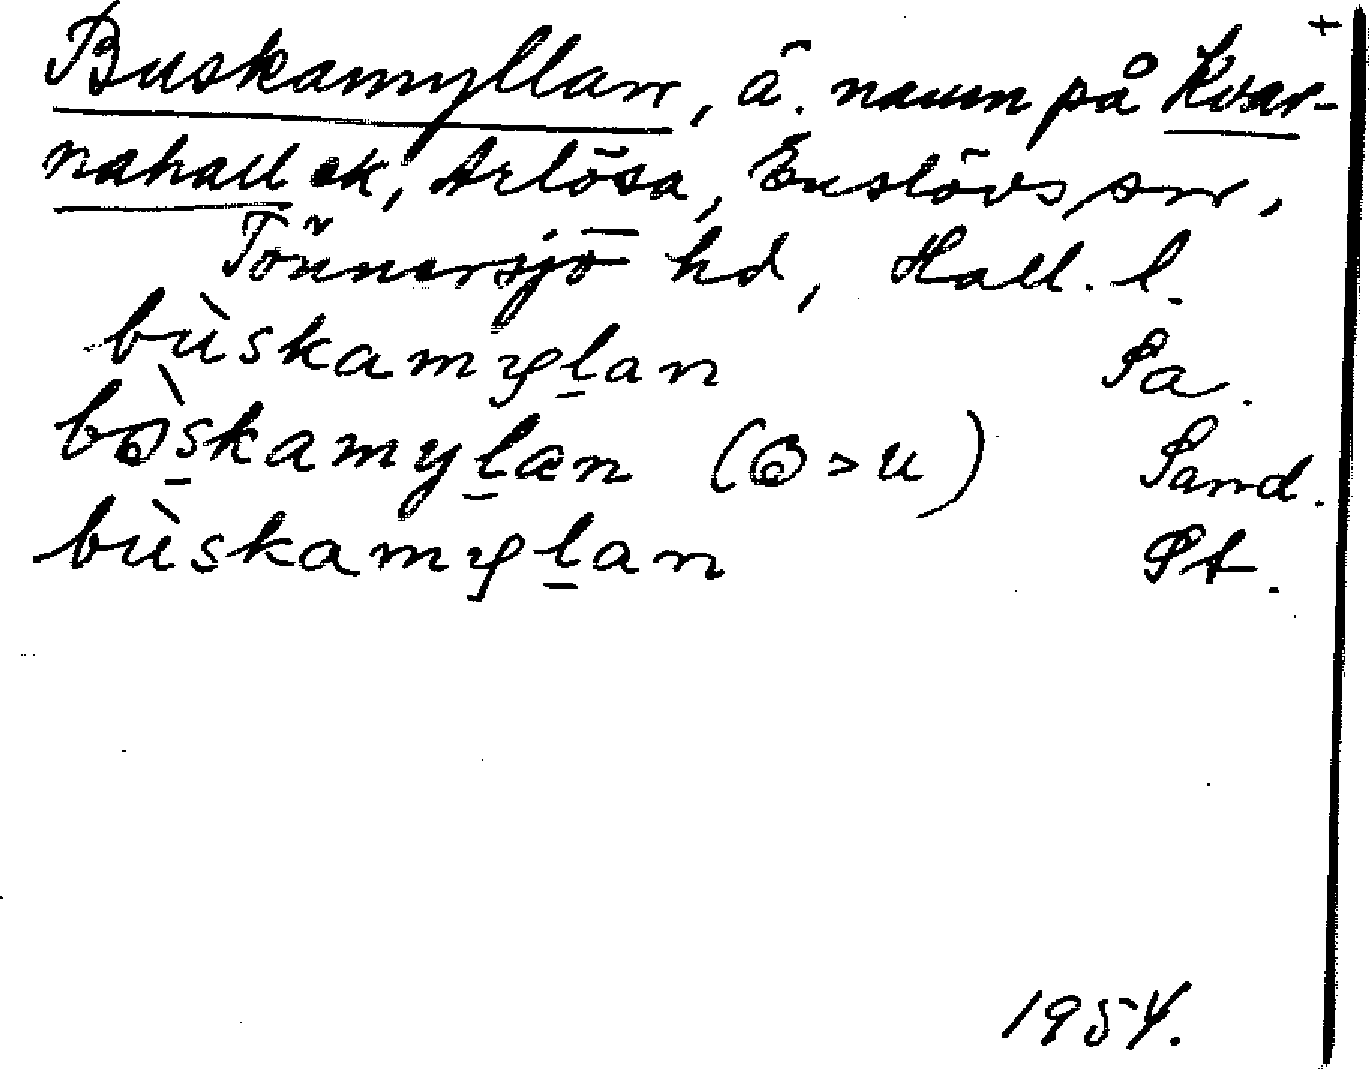 +
Buskamyllan, ä. namn på Kvar-
nahall ek, Årlösa, Enslövs sn,
Tönnersjö hd, Hall. l.
bùskamyḻan Sa.
bɷ̀s̠kamyḻan (ɷ > u) Sand.
bùskamyḻan St.
1954.